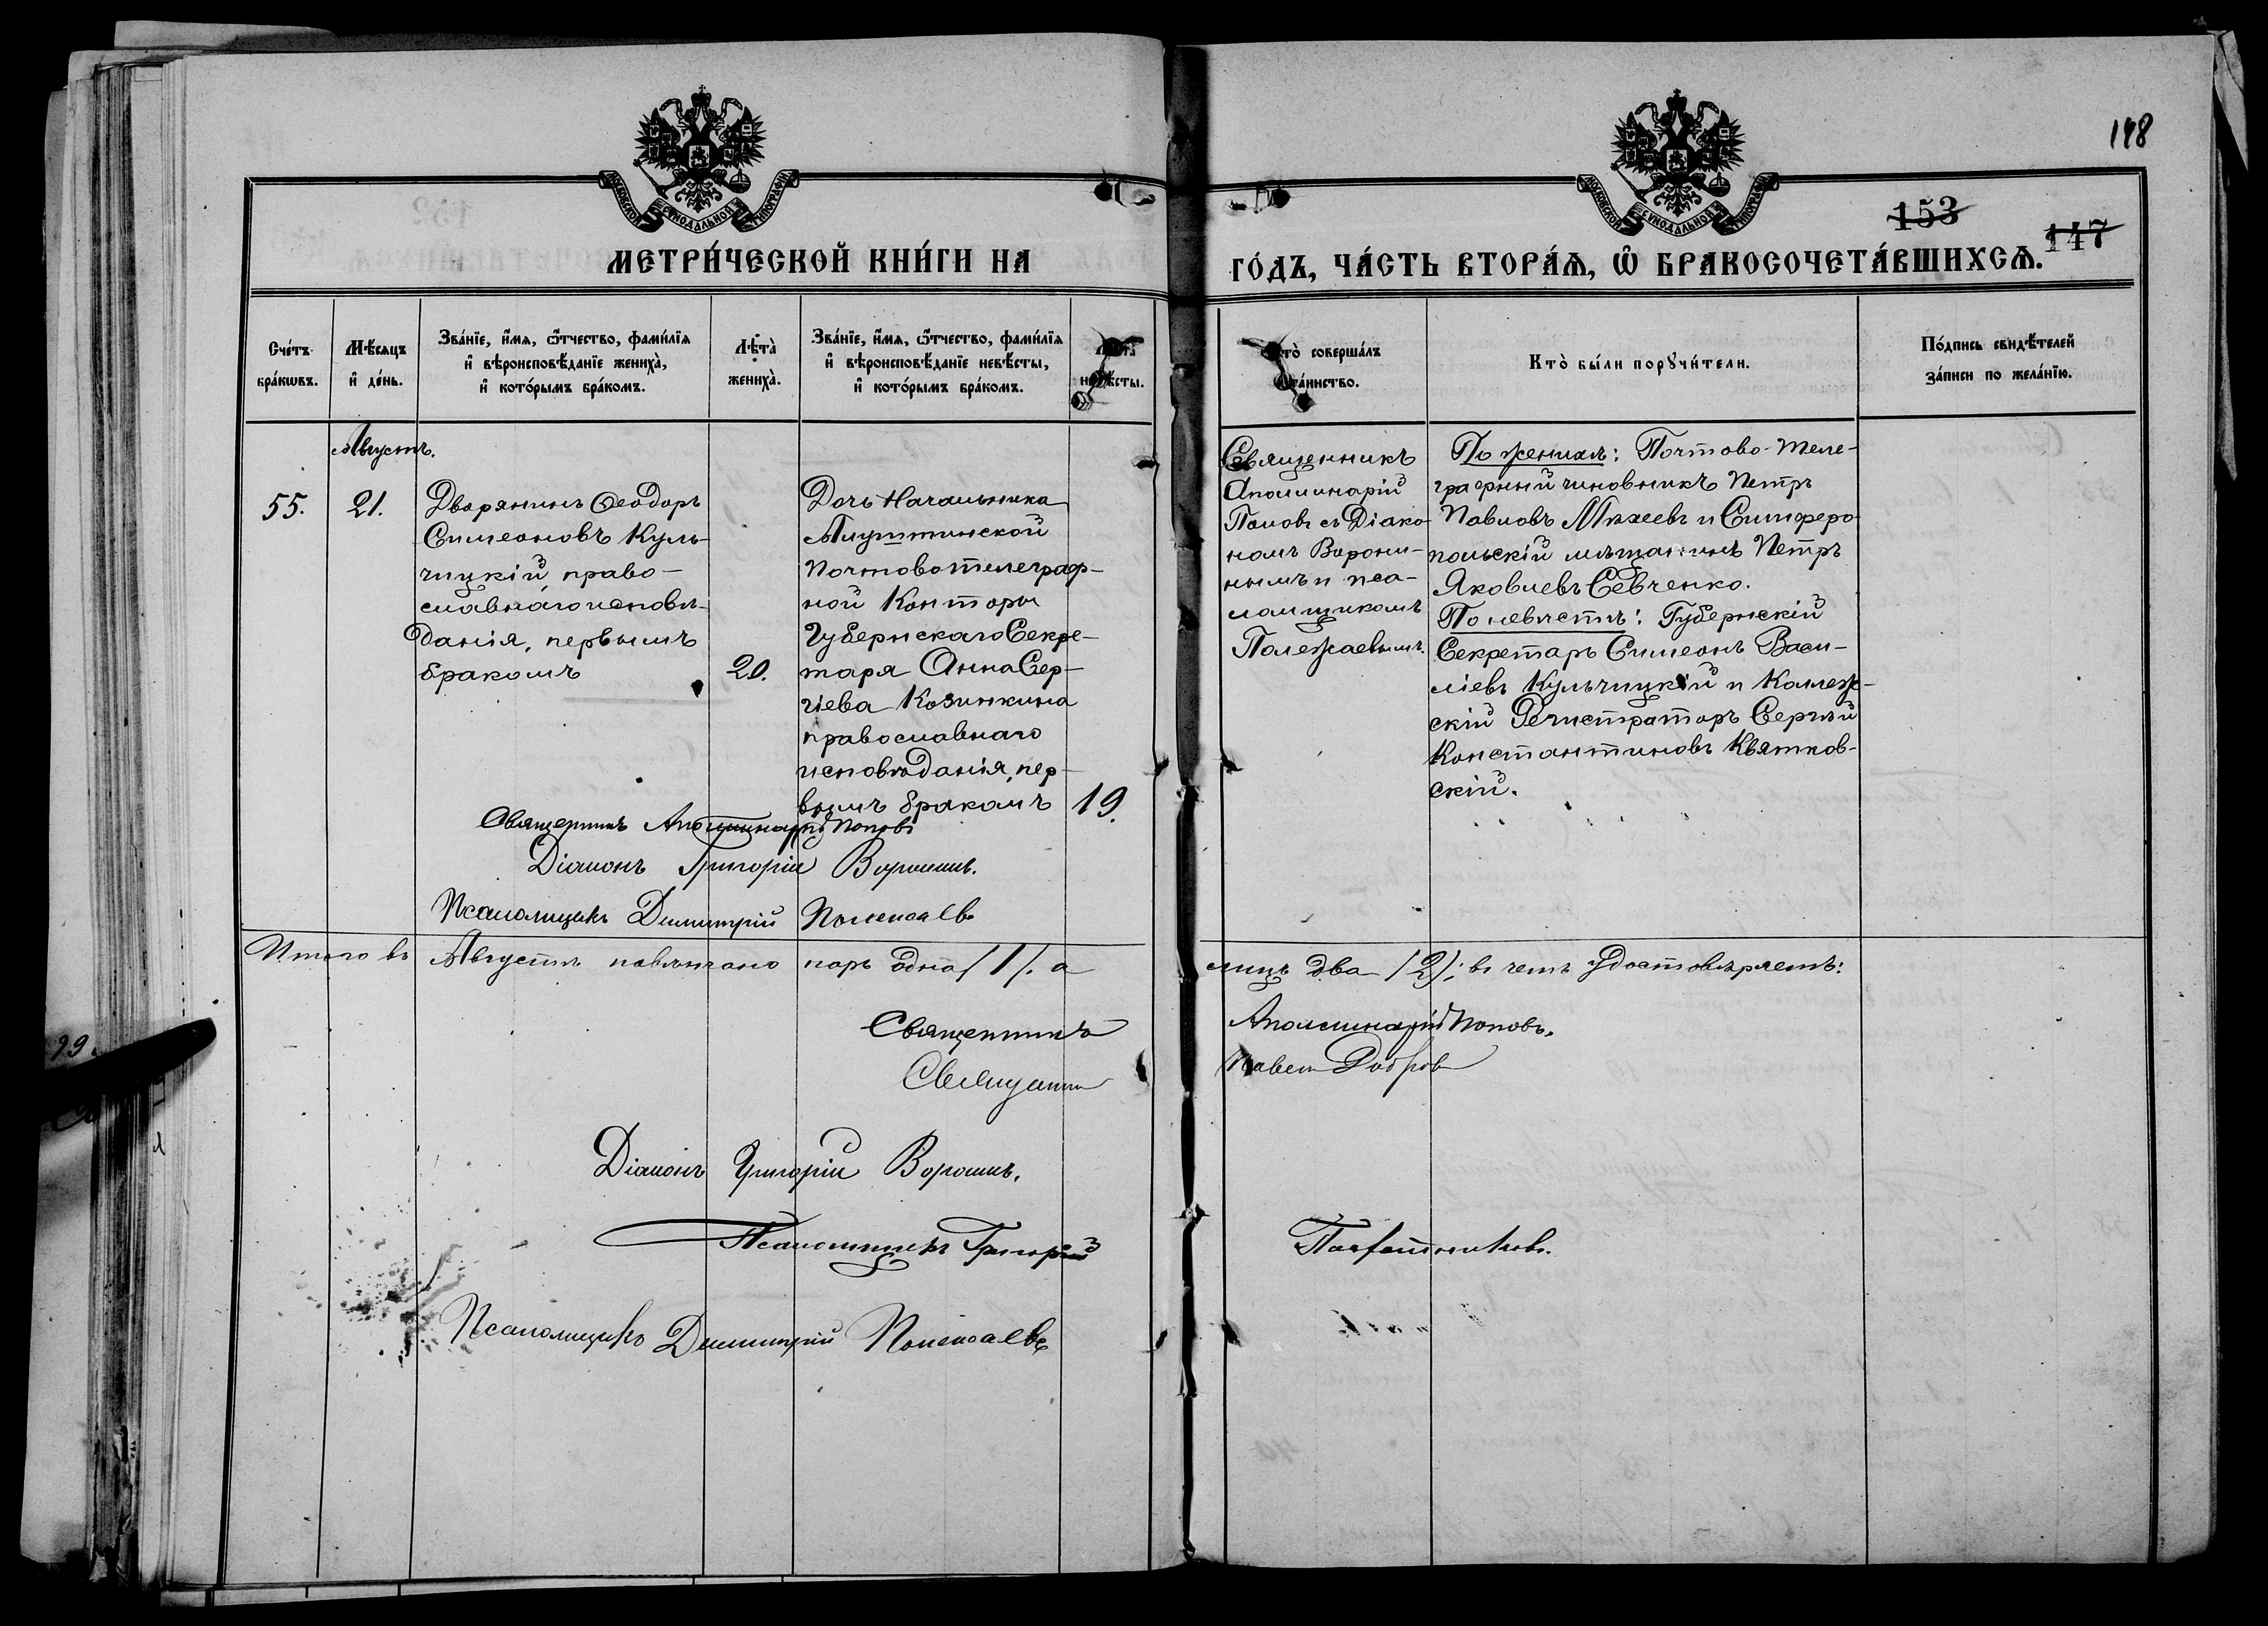 148
153
147
МОСКОВСКОЙ СѴНОДАЛЬНОЙ ТИПОГРАФІИ
МОСКОВСКОЙ СѴНОДАЛЬНОЙ ТИПОГРАФІИ
МЕТРИ́ЧЕСКОЙ КНИ́ГИ НА
ГО́ДЪ, ЧА́СТЬ ВТОРА́Ѧ, Ѽ БРАКОСОЧЕТА́ВШИХСѦ.
Сче́тъ
бра́кѡвъ.
Мѣ́сяцъ
и҆ де́нь.
Зва́нїе, и҆́мѧ, ѻ҆́тчество, фами́лїѧ
и҆ вѣроисповѣ́данїе жениха̀,
и҆ кото́рымъ бра́комъ.
Лѣта̀
жениха̀.
Зва́нїе, и҆́мѧ, ѻ҆́тчество, фами́лїѧ
и҆ вѣроисповѣ́данїе невѣ́сты,
и҆ кото́рымъ бра́комъ.
Лѣта̀
невѣ́сты.
Кто̀ соверша́лъ
та́инство.
Кто̀ бы́ли порꙋчи́тели.
По́дпись свидѣ́телей
за́писи по жела́нїю.
Августъ.
55.
21.
Дворянинъ Ѳеодоръ
Симеоновъ Куль-
чицкій право-
славнаго исповѣ-
данія, первымъ
бракомъ
20.
Дочь Начальника
Алуштинской
Почтовотелеграф-
ной Конторы
Губернскаго Секре-
таря Анна Сер-
гіева Козинкина
православнаго
исповѣданія, пер-
вымъ бракомъ
19.
Священникъ
Аполлинарій
Поповъ съ Діако-
номъ Ворони-
нымъ и пса-
ломщикомъ
Полежаевымъ.
По женихѣ: Почтово-теле-
графный чиновникъ Петръ
Павловъ Михеевъ и Симферо-
польскій мѣщанинъ Петръ
Яковлевъ Севченко.
По невѣстѣ: Губернскій
Секретарь Симеонъ Васи-
ліевъ Кульчицкій и Коллеж-
скій Регистраторъ Сергѣй
Константиновъ Квятков-
скій.
Священникъ Аполлинарій Поповъ
Діаконъ Григорій Воронинъ.
Псаломщикъ Димитрій Полежаевъ
Итого въ Августѣ повѣнчано паръ одна /1/. а лицъ два /2/; въ чемъ удостовѣряемъ:
Священникъ Аполлинарій Поповъ.
Священникъ Павелъ Добровъ
Діаконъ Григорій Воронинъ.
Псаломщикъ Григорій
Псаломщикъ Димитрій Полежаевъ
99.